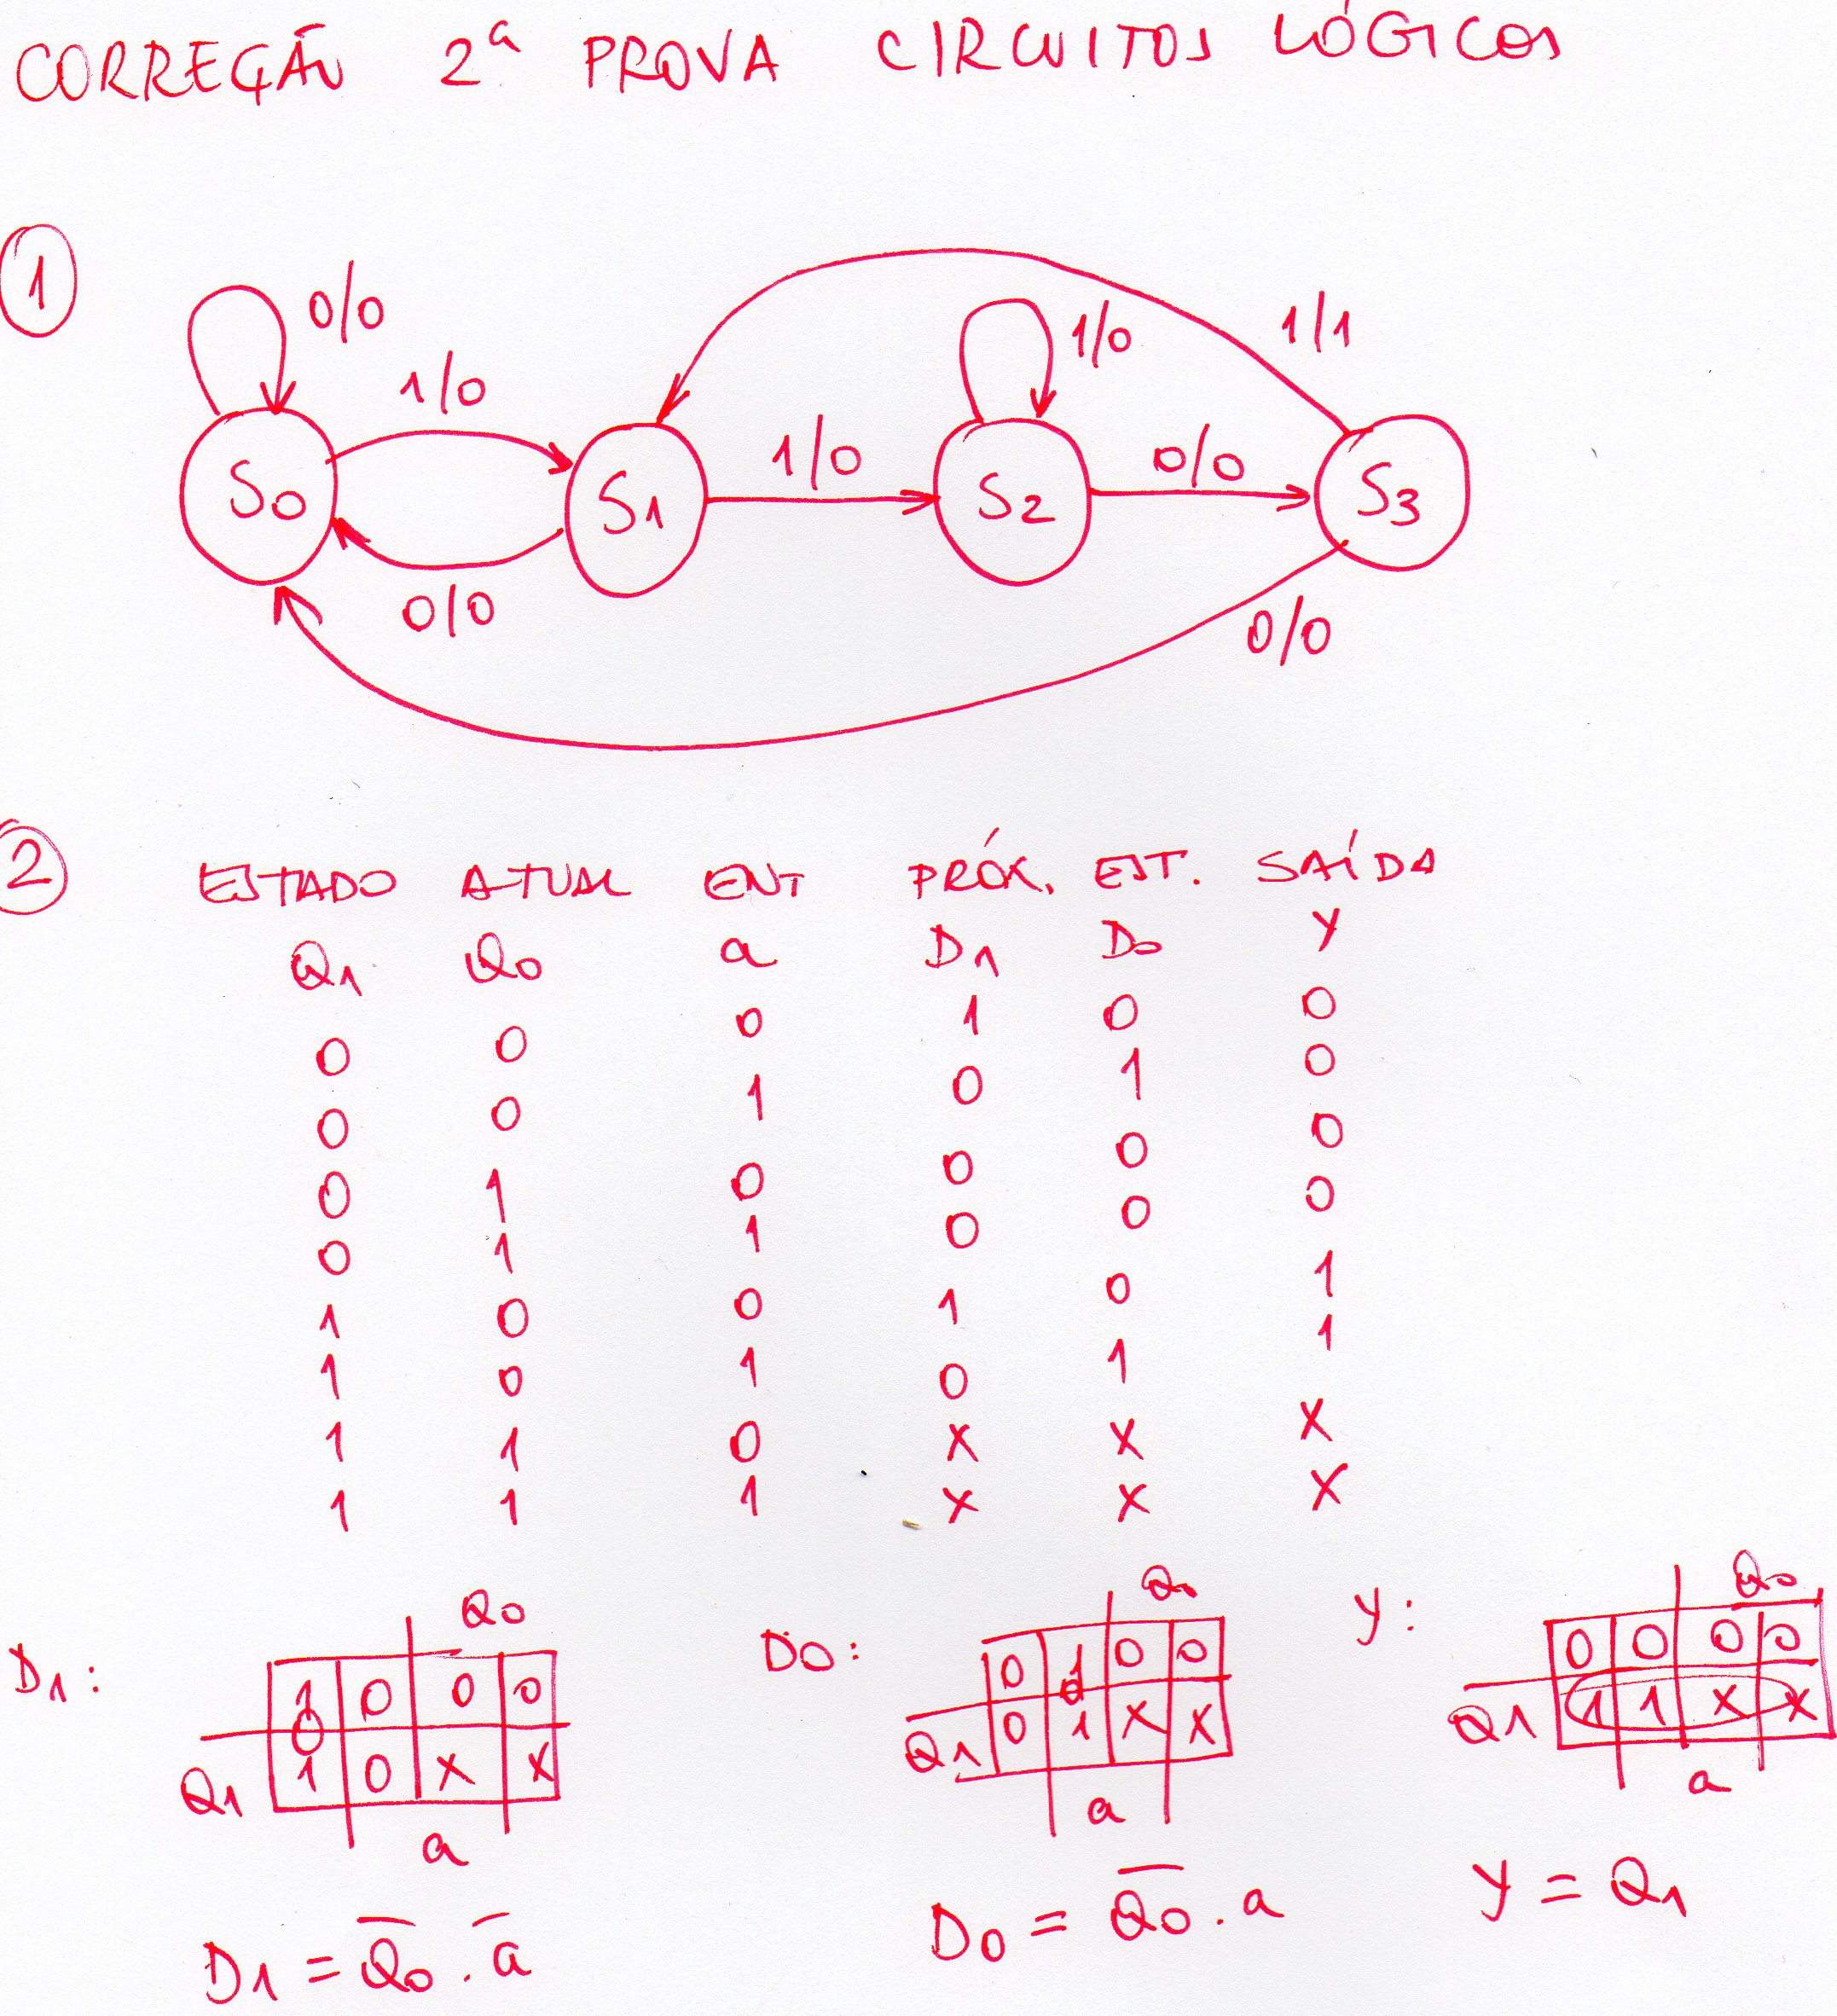 CORREÇÃO 2ª PROVA CIRCUITOS LÓGICOS
1
0/0
1/0
1/0
1/1
S0
1/0
S1
1/0
S2
0/0
S3
0/0
0/0
2
ESTADO ATUAL ENT PRÓX. EST. SAÍDA
Q1 Q0 a D1 D0 Y
0 0 0 1 0 0
0 0 1 0 1 0
0 1 0 0 0 0
0 1 1 0 0 0
1 0 0 1 0 1
1 0 1 0 1 1
1 1 0 X X X
1 1 1 X X X
D1:
Q0
1 0 0 0
Q1 1 0 X X
a
D1 = Q̅0̅ . a̅
D0:
Q0
0 1 0 0
Q1 0 1 X X
a
D0 = Q̅0̅ . a
Y:
Q0
0 0 0 0
Q1 1 1 X X
a
Y = Q1